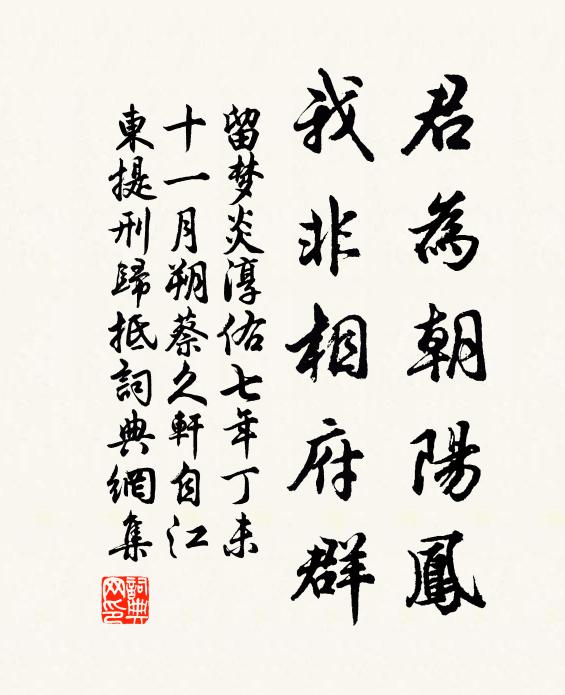 君為朝陽鳳
我非相府群
留梦炎淳佑七年丁未
十一月朔蔡久軒自江
東提刑歸抵詞典網集
詞典网印